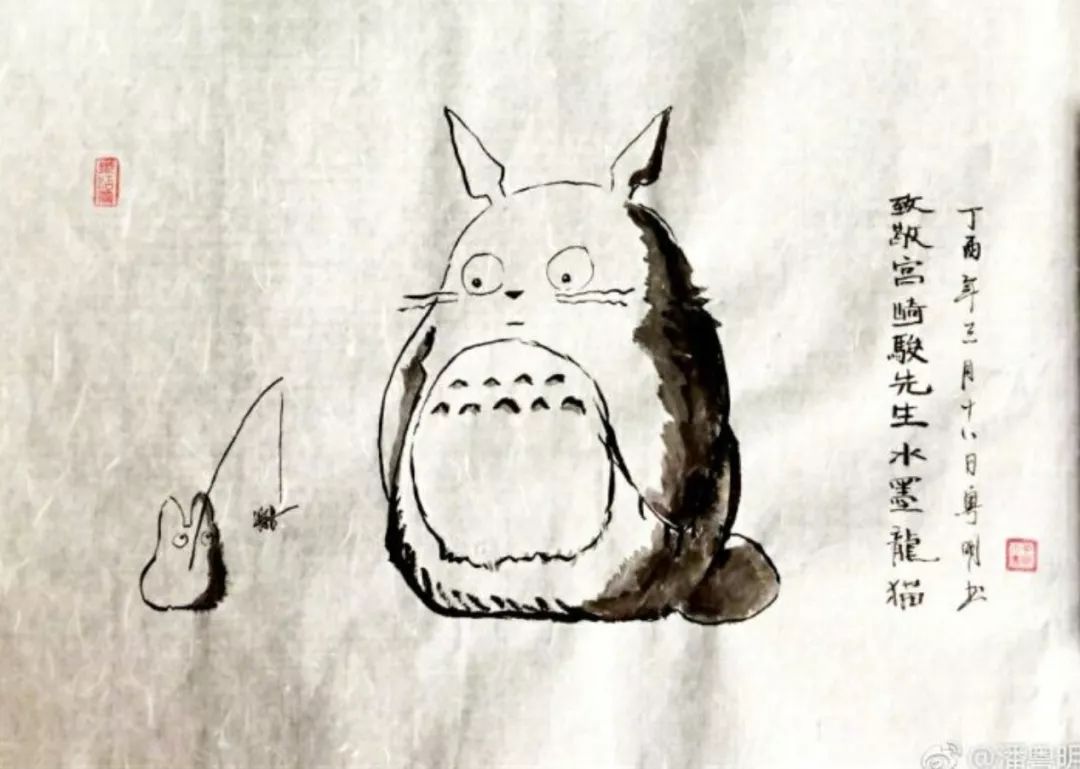 致敬宫崎駿先生水墨龍猫
丁酉年三月十八日粤明书
@潘粤明